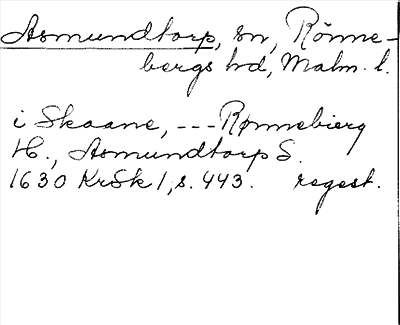 Asmundtorp, sn, Rönne-
bergs hd, Malm. l.
i Skaane, --- Rønnebierg
H., Asmundtorp S.
1630 KrSk 1, s. 443. regest.